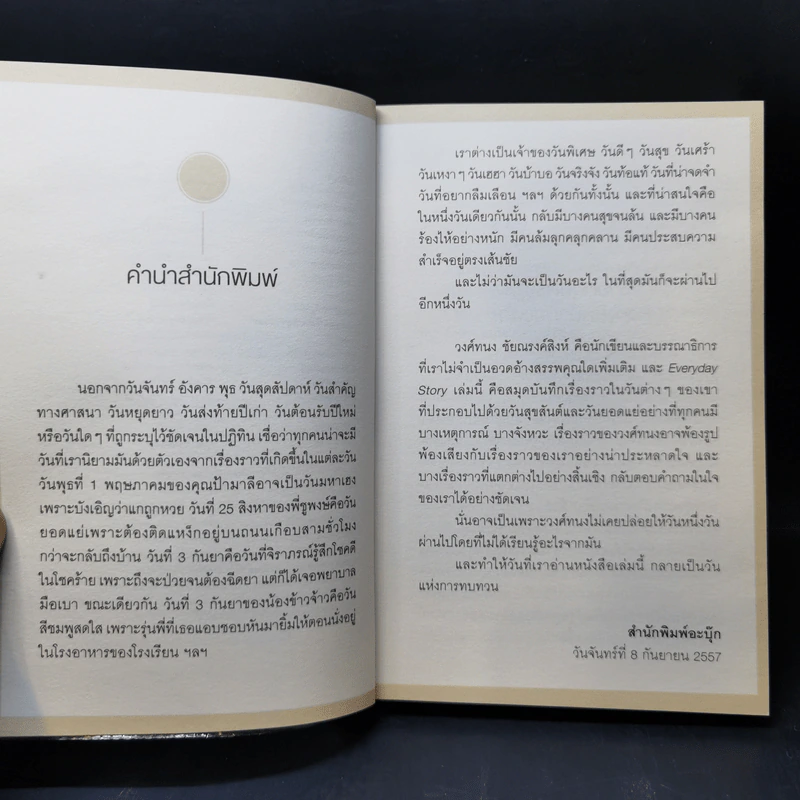 คำนำสำนักพิมพ์
นอกจากวันจันทร์ อังคาร พุธ วันสุดสัปดาห์ วันสำคัญ
ทางศาสนา วันหยุดยาว วันส่งท้ายปีเก่า วันต้อนรับปีใหม่
หรือวันใดๆ ที่ถูกระบุไว้ชัดเจนในปฏิทิน เชื่อว่าทุกคนน่าจะมี
วันที่เรานิยามมันด้วยตัวเองจากเรื่องราวที่เกิดขึ้นในแต่ละวัน
วันพุธที่ 1 พฤษภาคมของคุณป้ามาลีอาจเป็นวันมหาเฮง
เพราะบังเอิญว่าแกถูกหวย วันที่ 25 สิงหาของพี่ชูพงษ์คือวัน
ยอดแย่เพราะต้องติดแหง็กอยู่บนถนนเกือบสามชั่วโมง
กว่าจะกลับถึงบ้าน วันที่ 3 กันยาคือวันที่จิราภรณ์รู้สึกโชคดี
ในโชคร้าย เพราะถึงจะป่วยจนต้องฉีดยา แต่ก็ได้เจอพยาบาล
มือเบา ขณะเดียวกัน วันที่ 3 กันยาของน้องข้าวจ้าวคือวัน
สีชมพูสดใส เพราะรุ่นพี่ที่เธอแอบชอบหันมายิ้มให้ตอนนั่งอยู่
ในโรงอาหารของโรงเรียน ฯลฯ
เราต่างเป็นเจ้าของวันพิเศษ วันดีๆ วันสุข วันเศร้า
วันเหงาๆ วันเฮฮา วันบ้าบอ วันจริงจัง วันท้อแท้ วันที่น่าจดจำ
วันที่อยากลืมเลือน ฯลฯ ด้วยกันทั้งนั้น และที่น่าสนใจคือ
ในหนึ่งวันเดียวกันนั้น กลับมีบางคนสุขจนล้น และมีบางคน
ร้องไห้อย่างหนัก มีคนล้มลุกคลุกคลาน มีคนประสบความ
สำเร็จอยู่ตรงเส้นชัย
และไม่ว่ามันจะเป็นวันอะไร ในที่สุดมันก็จะผ่านไป
อีกหนึ่งวัน
วงศ์ทนง ชัยณรงค์สิงห์ คือนักเขียนและบรรณาธิการ
ที่เราไม่จำเป็นอวดอ้างสรรพคุณใดเพิ่มเติม และ Everyday
Story เล่มนี้ คือสมุดบันทึกเรื่องราวในวันต่างๆ ของเขา
ที่ประกอบไปด้วยวันสุขสันต์และวันยอดแย่อย่างที่ทุกคนมี
บางเหตุการณ์ บางจังหวะ เรื่องราวของวงศ์ทนงอาจพ้องรูป
พ้องเสียงกับเรื่องราวของเราอย่างน่าประหลาดใจ และ
บางเรื่องราวที่แตกต่างไปอย่างสิ้นเชิง กลับตอบคำถามในใจ
ของเราได้อย่างชัดเจน
นั่นอาจเป็นเพราะวงศ์ทนงไม่เคยปล่อยให้วันหนึ่งวัน
ผ่านไปโดยที่ไม่ได้เรียนรู้อะไรจากมัน
และทำให้วันที่เราอ่านหนังสือเล่มนี้ กลายเป็นวัน
แห่งการทบทวน
สำนักพิมพ์อะบุ๊ก
วันจันทร์ที่ 8 กันยายน 2557